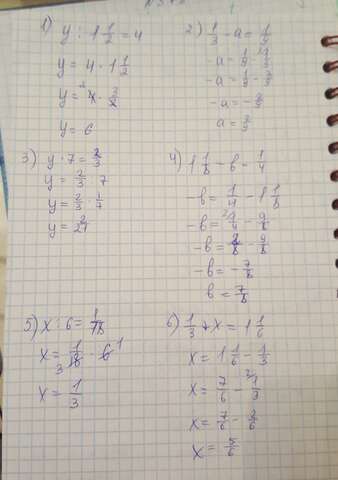 1) y : 1 1/2 = 4
y = 4 · 1 1/2
y = 4 · 3/2
y = 6
2) 1/3 - a = 1/9
-a = 1/9 - 1/3
-a = 1/9 - 3/9
-a = - 2/9
a = 2/9
3) y · 7 = 2/3
y = 2/3 : 7
y = 2/3 · 1/7
y = 2/21
4) 1 1/8 - b = 1/4
-b = 1/4 - 1 1/8
-b = 1/4 - 9/8
-b = 2/8 - 9/8
-b = - 7/8
b = 7/8
5) x : 6 = 1/18
x = 1/18 · 6
x = 1/3
6) 1/3 + x = 1 1/6
x = 1 1/6 - 1/3
x = 7/6 - 1/3
x = 7/6 - 2/6
x = 5/6